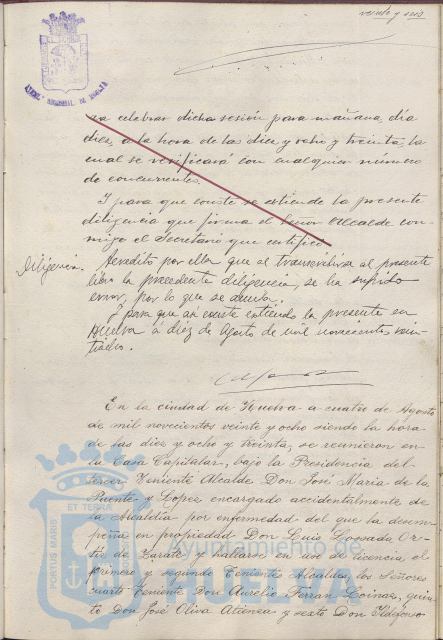 veinte y seis
ra celebrar dicha sesión para mañana, día
diez, a la hora de las diez y ocho y treinta, la
cual se verificará con cualquier número
de concurrentes.
Y para que conste se extiende la presente
diligencia que firma el Señor Alcalde con-
migo el Secretario que certifico
Diligencia. Acredito por ella que al transcribirse al presente
libro la precedente diligencia, se ha sufrido
error, por lo que se anula.
Y para que así conste extiendo la presente en
Huelva á diez de Agosto de mil novecientos vein-
tiocho.
En la ciudad de Huelva a cuatro de Agosto
de mil novecientos veinte y ocho siendo la hora
de las diez y ocho y treinta, se reunieron en
la Casa Capitular, bajo la Presidencia del
tercer Teniente Alcalde Don José Maria de la
Puente y Lopez encargado accidentalmente de
la Alcaldía por enfermedad del que la desem-
peña en propiedad Don Luis Or-
tiz de Zarate y hallarse en uso de licencia el
primero y segundo Teniente Alcaldes, los Señores
cuarto Teniente Don Aurelio Ferran Loinaz, quin-
to Don José Oliva Atienza y sexto Don Ildefonso
PORTUS MARIS ET TERRAE
Ayuntamiento de
HUELVA